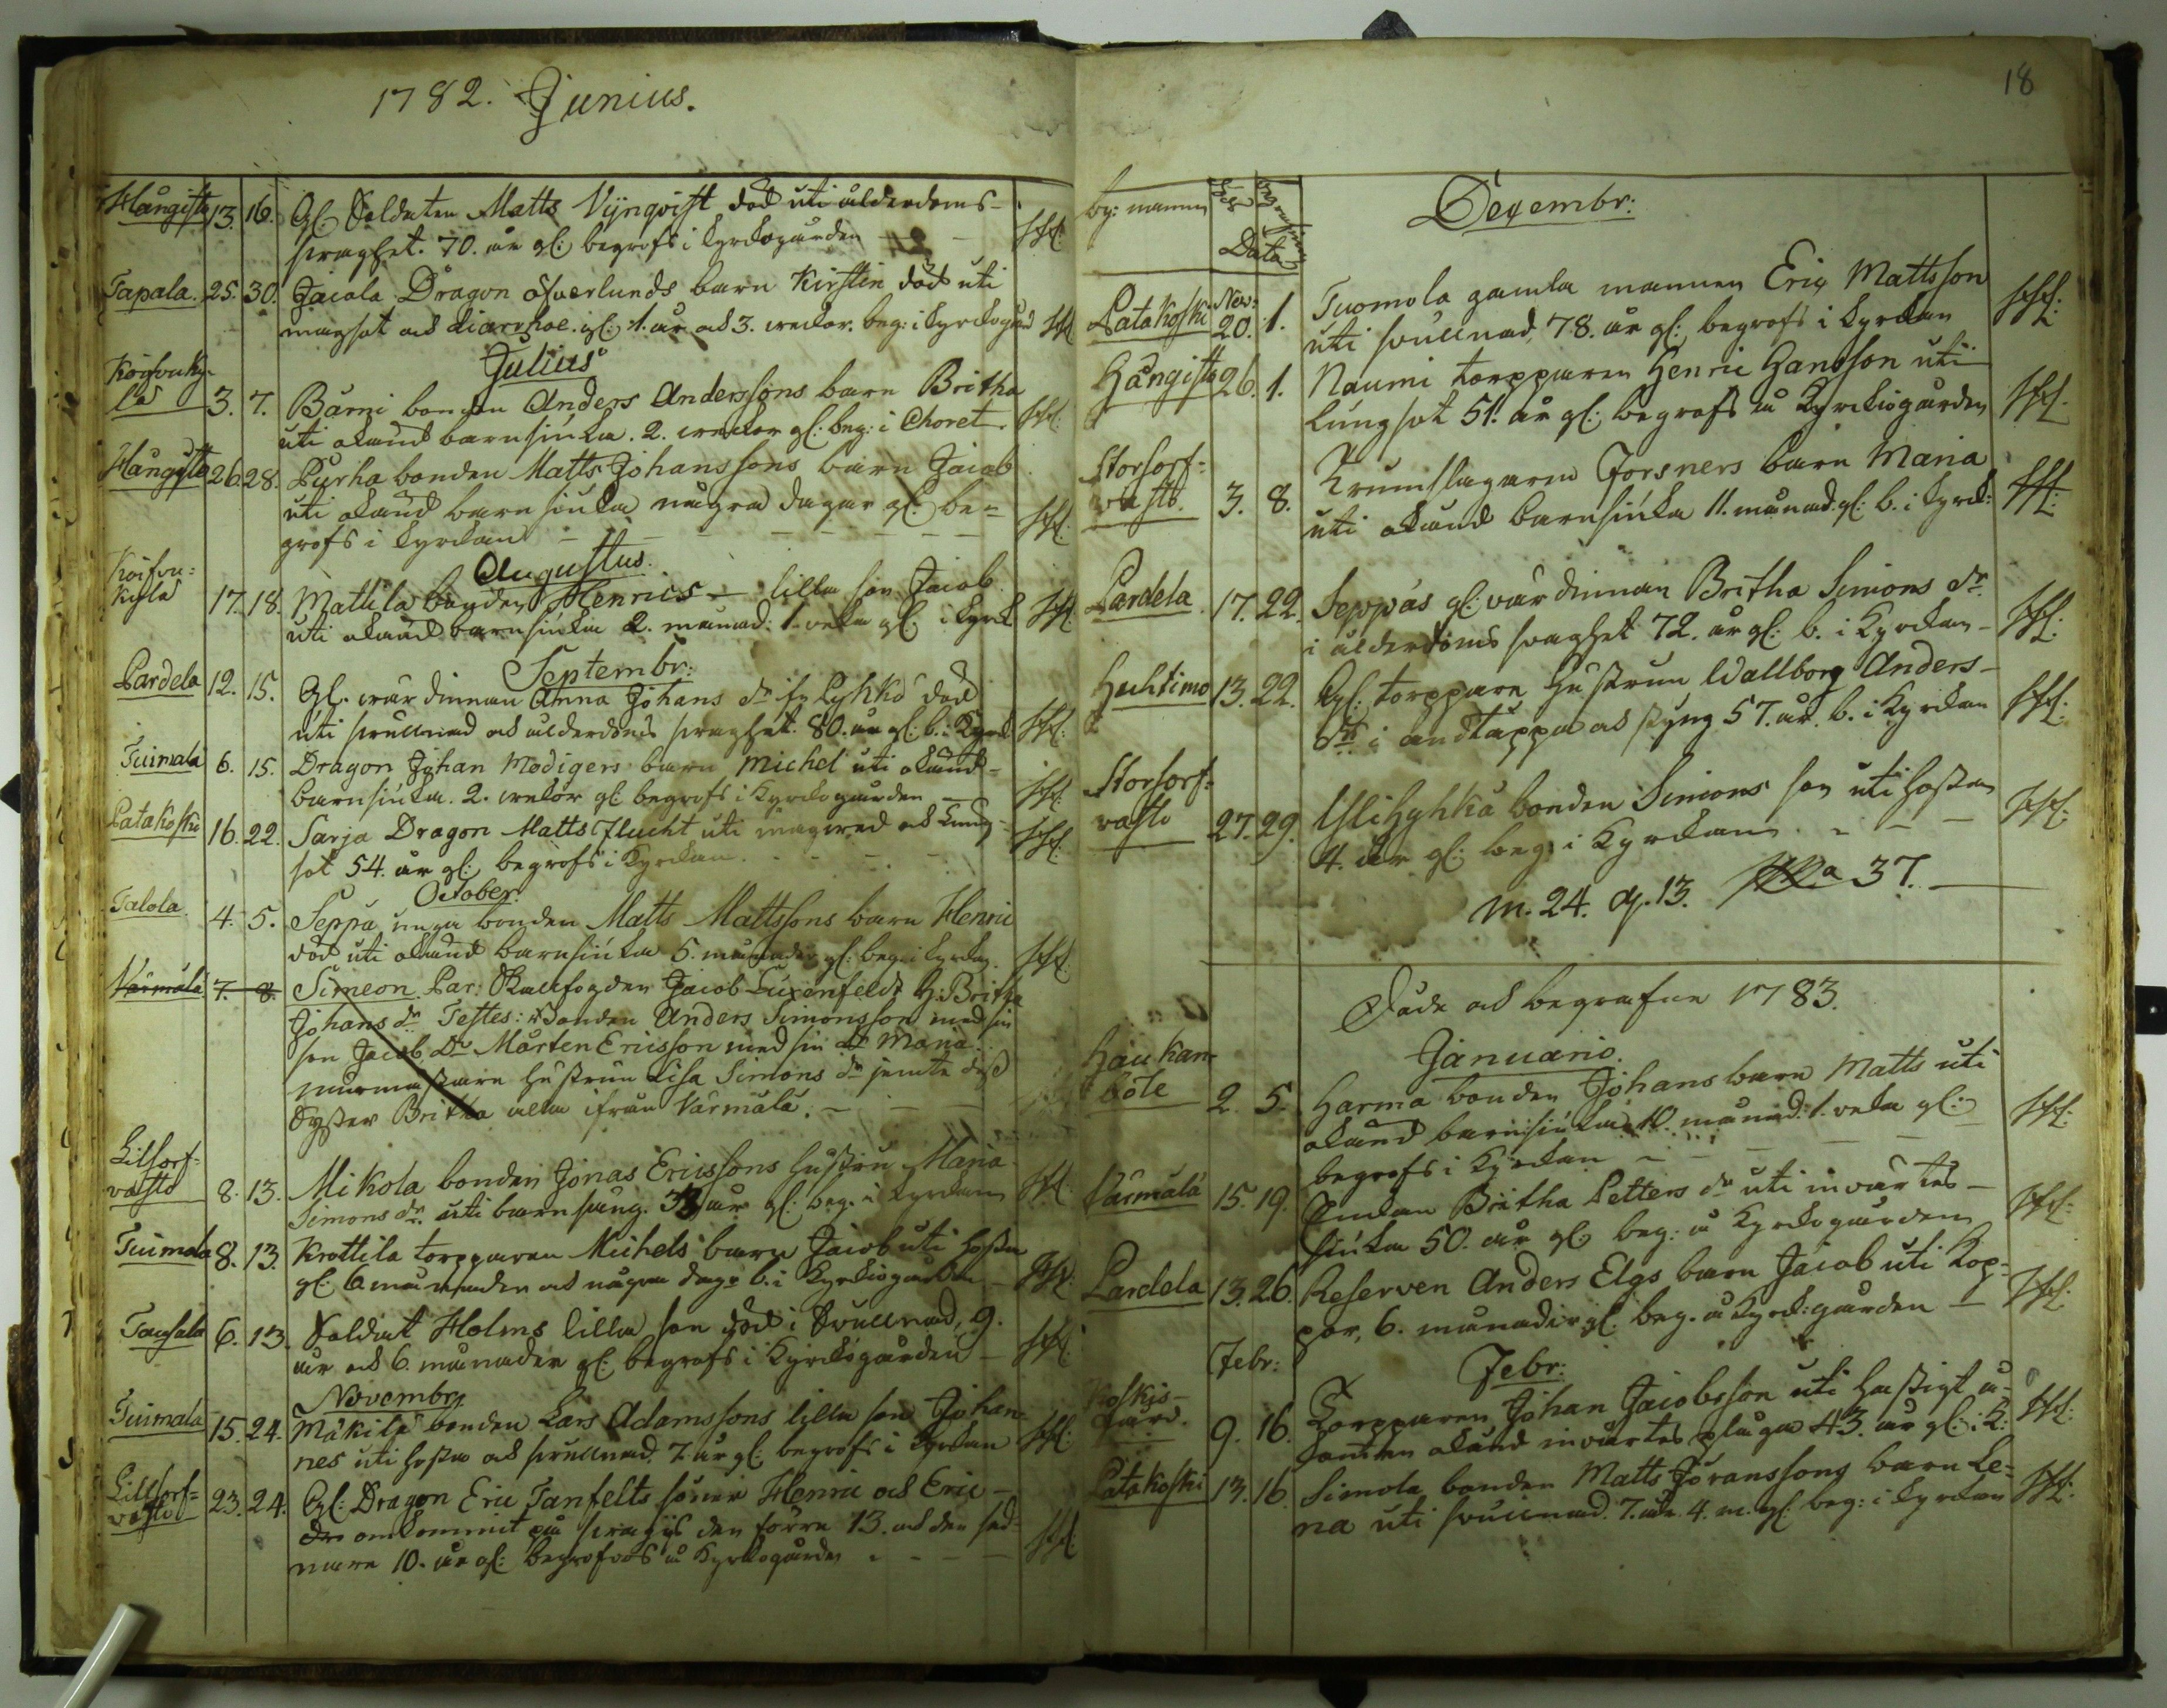 1782. Junius.
Hångisto 13. 16. Gl: Soldaten Matts Vynqvist död uti ålderdoms-
svaghet. 70. år gl: begrofs i kyrkogården
Tapala. 25. 30. Jacala Dragon Öfverlunds barn Kirstin död uti
magsot och diarrhoe. gl: 1. år och 3. weckor. beg: i kyrckogård
Julius
Koifvuky-
lä 3. 7. Barni bonden Anders Anderssons barn Britha
uti okänd barnsiuka. 2. weckor gl: beg: i Choret.
Hångisto 26. 28. Purha bonden Matts Johanssons barn Jacob
uti okänd barnsiuka några dagar gl: be-
grofs i kyrckan
Augustus.
Koifvu-
kylä 17. 18. Mattila bonden Henrics lilla son Jacob
uti okänd barnsiuka 2. månad: 1. veka gl: i kyrck
Septembr:
Pardela 12. 15. Gl. wärdinnan Anna Johans dr Lyhkö död
uti swullnad och ålderdoms swaghet. 80. år gl: b. i Kyrck
Tuimala 6. 15. Dragon Johan Modigers barn Michel uti okänd
barnsiuka. 2. wekor gl: begrofs i Kyrckogården
Latakoski 16. 22. Sarja Dragon Matts Flucht uti magwred och Lung-
sot 54. år gl: begrofs i Kyrckan.
October:
Talola 4. 5. Seppä unga bonden Matts Mattssons barn Henric
död uti okänd barnsiuka 5. månader gl: beg: i kyrckan.
Värmälä 7. 8. Simeon. Par: Skallfogden Jacob Luxenfeldt H: Britha
Johans dr Testes: Bonden Anders Simonsson med sin
son Jacob Dr Mårten Ericsson med sin dr Maria.
murmästare Hustrun Lisa Simons dr jemte dess
Syster Britha alla ifrån Värmälä.
Lillsorf-
vasto 8. 13. Mikola bonden Jonas Ericssons hustru Maria
Simons dr. uti barnsäng. 33 år gl: beg: i kyrckan
Tuimala 8. 13. Krottila torpparen Michels barn Jacob uti hosta
gl: 6 månader och några dag: b. i Kyrckogården
Tausala 6. 13. Soldat Holms lilla son död i Svullnad, 9.
år och 6. månader gl: begrofs i Kyrckogården
Novembr:
Tuimala 15. 24. Mäkilä bonden Lars Adamssons lilla son Johan-
nes uti hosta och swullnad. 7. år gl: begrofs i kyrckan
Lillsorf-
vasto 23. 24. Gl: Dragon Eric Tanfelts söner Henric och Eric
omkommit på swagis den förre 13. och den sed-
nare 10. år gl: begrofvos å Kyrckogården
18
by: namn död begrafven Data
Decembr:
Latakoski Nov: 20. 1. Tuomola gamla mannen Eric Mattsson
uti svullnad, 78. år gl: begrofs i kyrckan
Hångisto 26. 1. Naumi torpparen Henric Hansson uti
lungsot 51. år gl: begrofs å Kyrckogården
Storsorf-
vasto. 3. 8. Trumslagaren Forsners barn Maria
uti okänd barnsiuka 11. månad. gl: b. i Kyrck:
Pardela 17. 22. Seppäs gl: värdinnan Britha Simons dr
i ålderdoms svaghet 72. år gl: b. i Kyrckan
Huhtimo 13. 22. Gl: torppare hustrun Wallborg Anders
dr: i andtäppa och styng 57. år. b. i Kyrckan
Storsorf-
vasto 27. 29. Ylihyhkä bonden Simons son uti hostan
4. år gl: beg: i Kyrckan.
M. 24. Q. 13. Sum:a 37.
Döde och begrafne 1783.
Januario.
Haukan-
böle 2. 5. Harma bonden Johans barn Matts uti
okänd barnsiuka 10. månad: 1. veka gl:
begrofs i Kyrckan
Värmälä 15. 19. Enkan Britha Petters dr uti invärtes
siuka 50. år gl: beg: å Kyrckogården
Pardela 13. 26. Reserven Anders Elgs barn Jacob uti Kop-
por, 6. månader gl: beg. å Kyrck:gården
Febr: Febr:
Koskis-
gård. 9. 16. Torpparen Johan Jacobsson uti hastigt å-
kommen okänd invärtes plåga 43. år gl: i K:
Latakoski 13. 16. Simola bonden Matts Joranssons barn Le-
na uti svullnad. 7. år. 4. m. gl: beg: i kyrckan